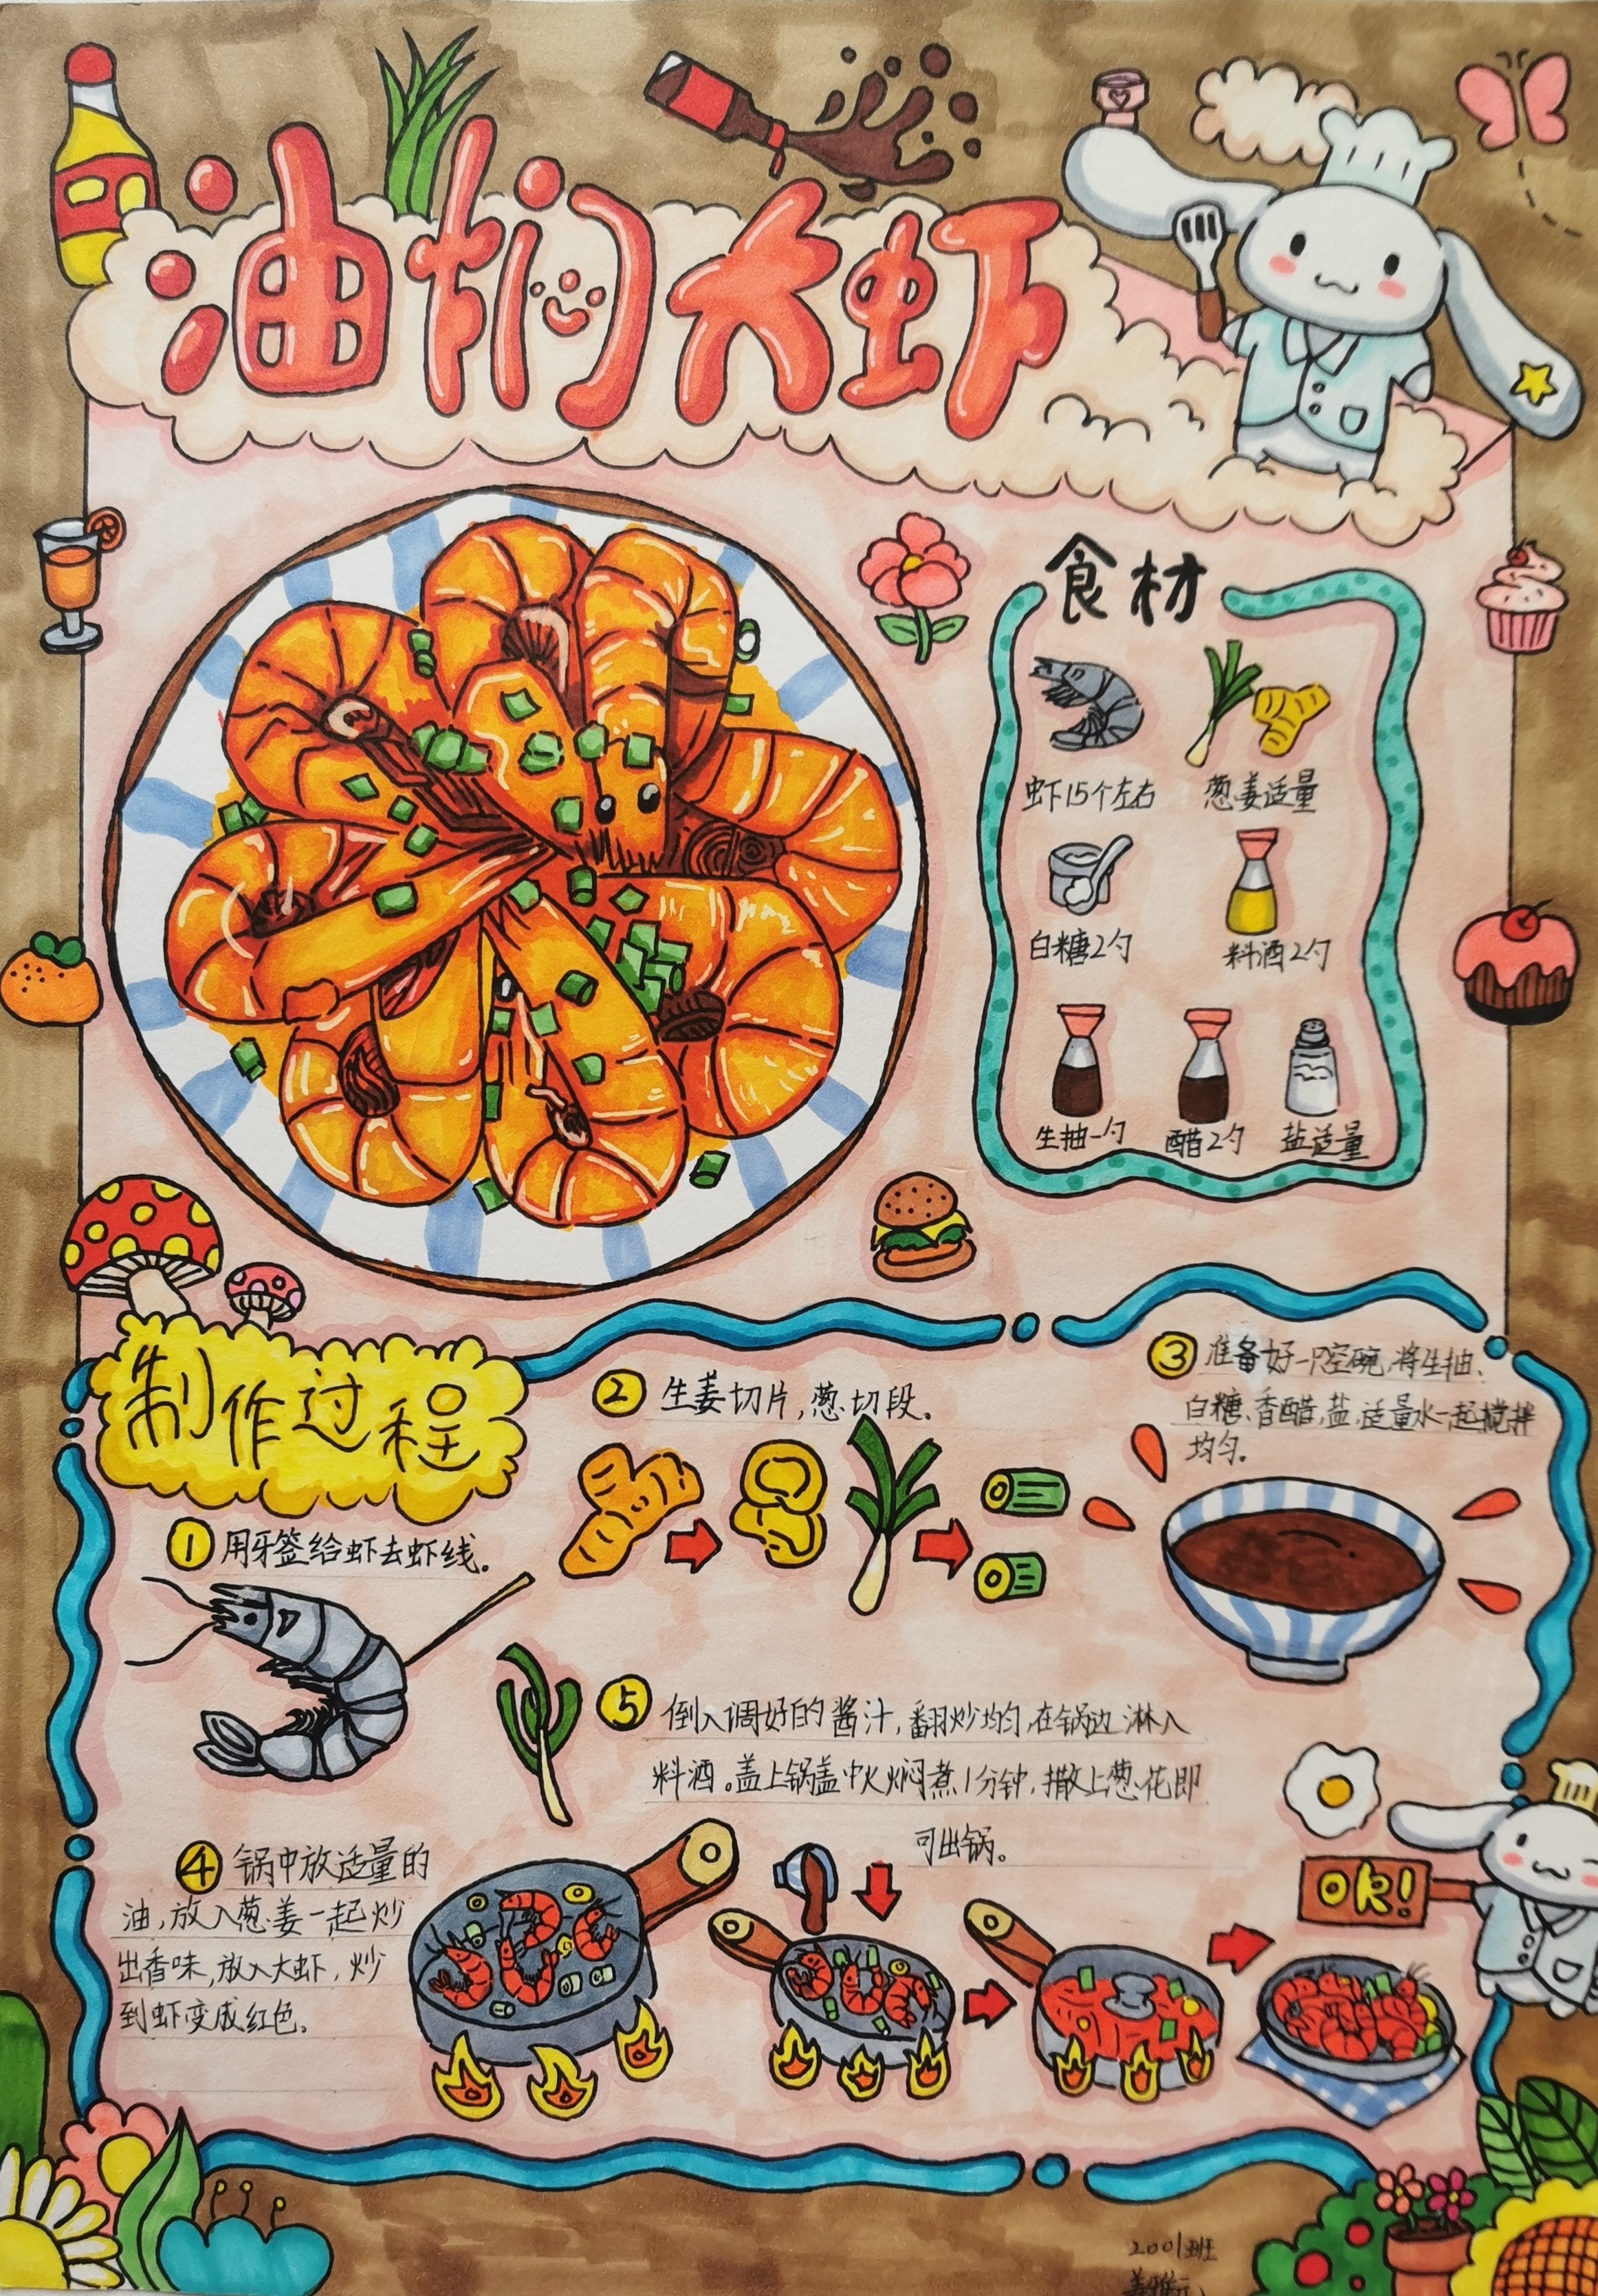 油焖大虾
食材
虾15个左右
葱姜适量
白糖2勺
料酒2勺
生抽一勺
醋2勺
盐适量
制作过程
① 用牙签给虾去虾线。
② 生姜切片,葱切段。
③ 准备好一只空碗,将生抽、
白糖、香醋,盐,适量水一起搅拌
均匀。
④ 锅中放适量的
油,放入葱姜一起炒
出香味,放入大虾,炒
到虾变成红色。
⑤ 倒入调好的酱汁,翻炒均匀,在锅边淋入
料酒。盖上锅盖中火焖煮1分钟,撒上葱花即
可出锅。
OK!
2001班